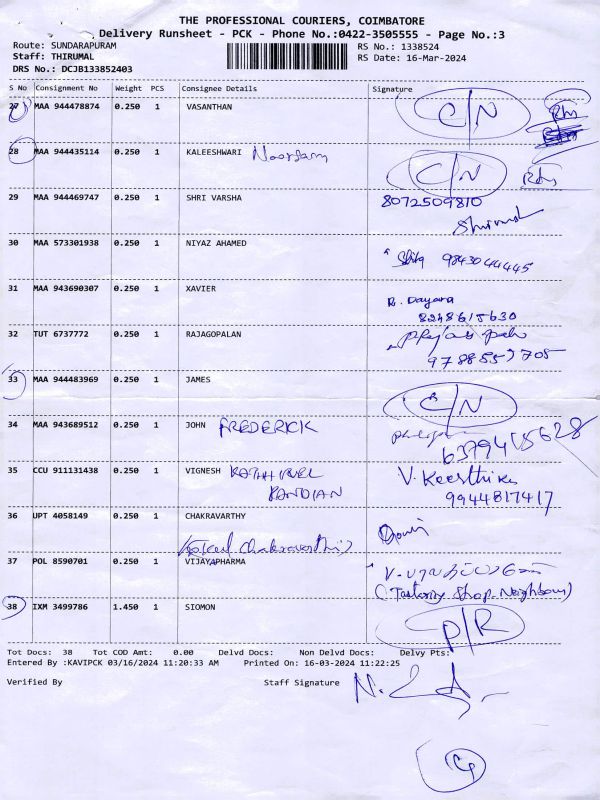 THE PROFESSIONAL COURIERS, COIMBATORE
Delivery Runsheet - PCK - Phone No.:0422-3505555 - Page No.:3
Route: SUNDARAPURAM RS No.: 1338524
Staff: THIRUMAL RS Date: 16-Mar-2024
DRS No.: DCJB133852403
S No Consignment No Weight PCS Consignee Details Signature
27 MAA 944478874 0.250 1 VASANTHAN C/N
28 MAA 944435114 0.250 1 KALEESHWARI C/N
29 MAA 944469747 0.250 1 SHRI VARSHA 8072509810
30 MAA 573301938 0.250 1 NIYAZ AHAMED 9843044445
31 MAA 943690307 0.250 1 XAVIER R. Dayana
8248615630
32 TUT 6737772 0.250 1 RAJAGOPALAN
33 MAA 944483969 0.250 1 JAMES C/N
34 MAA 943689512 0.250 1 JOHN FREDERICK
35 CCU 911131438 0.250 1 VIGNESH KATHIRVEL V. Keerthika
PANDIAN 9944817417
36 UPT 4058149 0.250 1 CHAKRAVARTHY Gowri
37 POL 8590701 0.250 1 VIJAYAPHARMA
(Tailoring Shop-Neighbour)
38 IXM 3499786 1.450 1 SIOMON P/R
Tot Docs: 38 Tot COD Amt: 0.00 Delvd Docs: Non Delvd Docs: Delvy Pts:
Entered By :KAVIPCK 03/16/2024 11:20:33 AM Printed On: 16-03-2024 11:22:25
Verified By Staff Signature